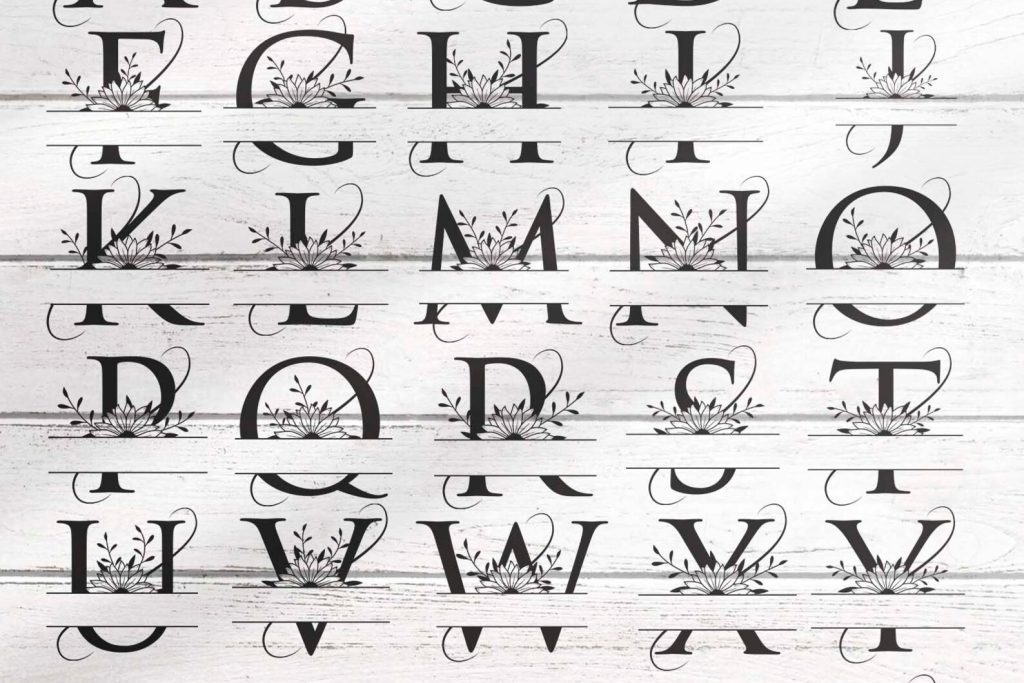 F G H I J
K L M N O
P Q R S T
U V W X Y